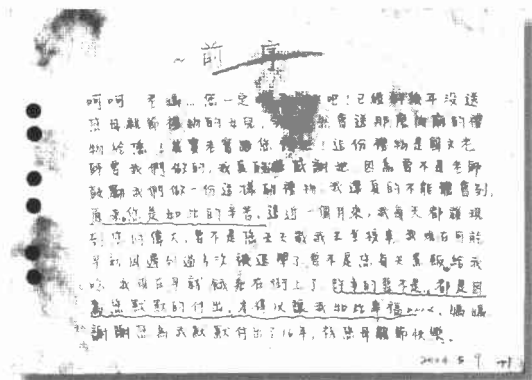 ~前序
呵呵 老媽...您一定 吧!已經好幾年沒送
您母親節禮物的女兒, 會送那麼 的禮
物給您! 這份禮物是國文老
師要我們做的,我真的 感謝她 因為要不是老師
鼓勵我們做一份這樣的禮物,我還真的不能體會到,
原來您是如此的辛苦。這近一個月來,我每天都 發現
到您的偉大,要不是您天天載我去坐校車,我現在可能
早就因遲到過多次 退學了。要不是您每天煮飯給我
吃,我現在早就餓死在街上了。 的要不是,都是因
為您默默的付出,才得以讓我如此幸福......。媽媽
謝謝您為我默默付出了16年,祝您母親節快樂。
2004 5 9